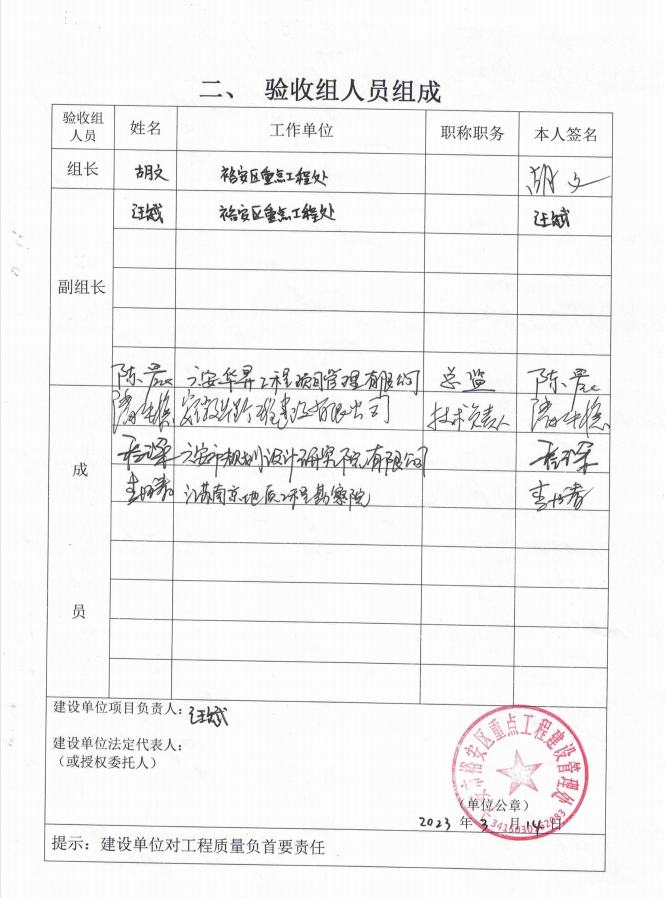 二、 验收组人员组成
验收组人员 姓名 工作单位 职称职务 本人签名
组长 胡文 裕安区重点工程处 胡文
副组长 汪斌 裕安区重点工程处 汪斌
陈 六安华昇工程项目管理有限公司 总监 陈
有限公司 技术负责人
成员 六安市规划设计研究院有限公司
江苏南京地质工程勘察院
建设单位项目负责人：汪斌
建设单位法定代表人：
（或授权委托人）
裕安区重点工程建设管理处
（单位公章）
2023 年 3 月 14 日
提示：建设单位对工程质量负首要责任